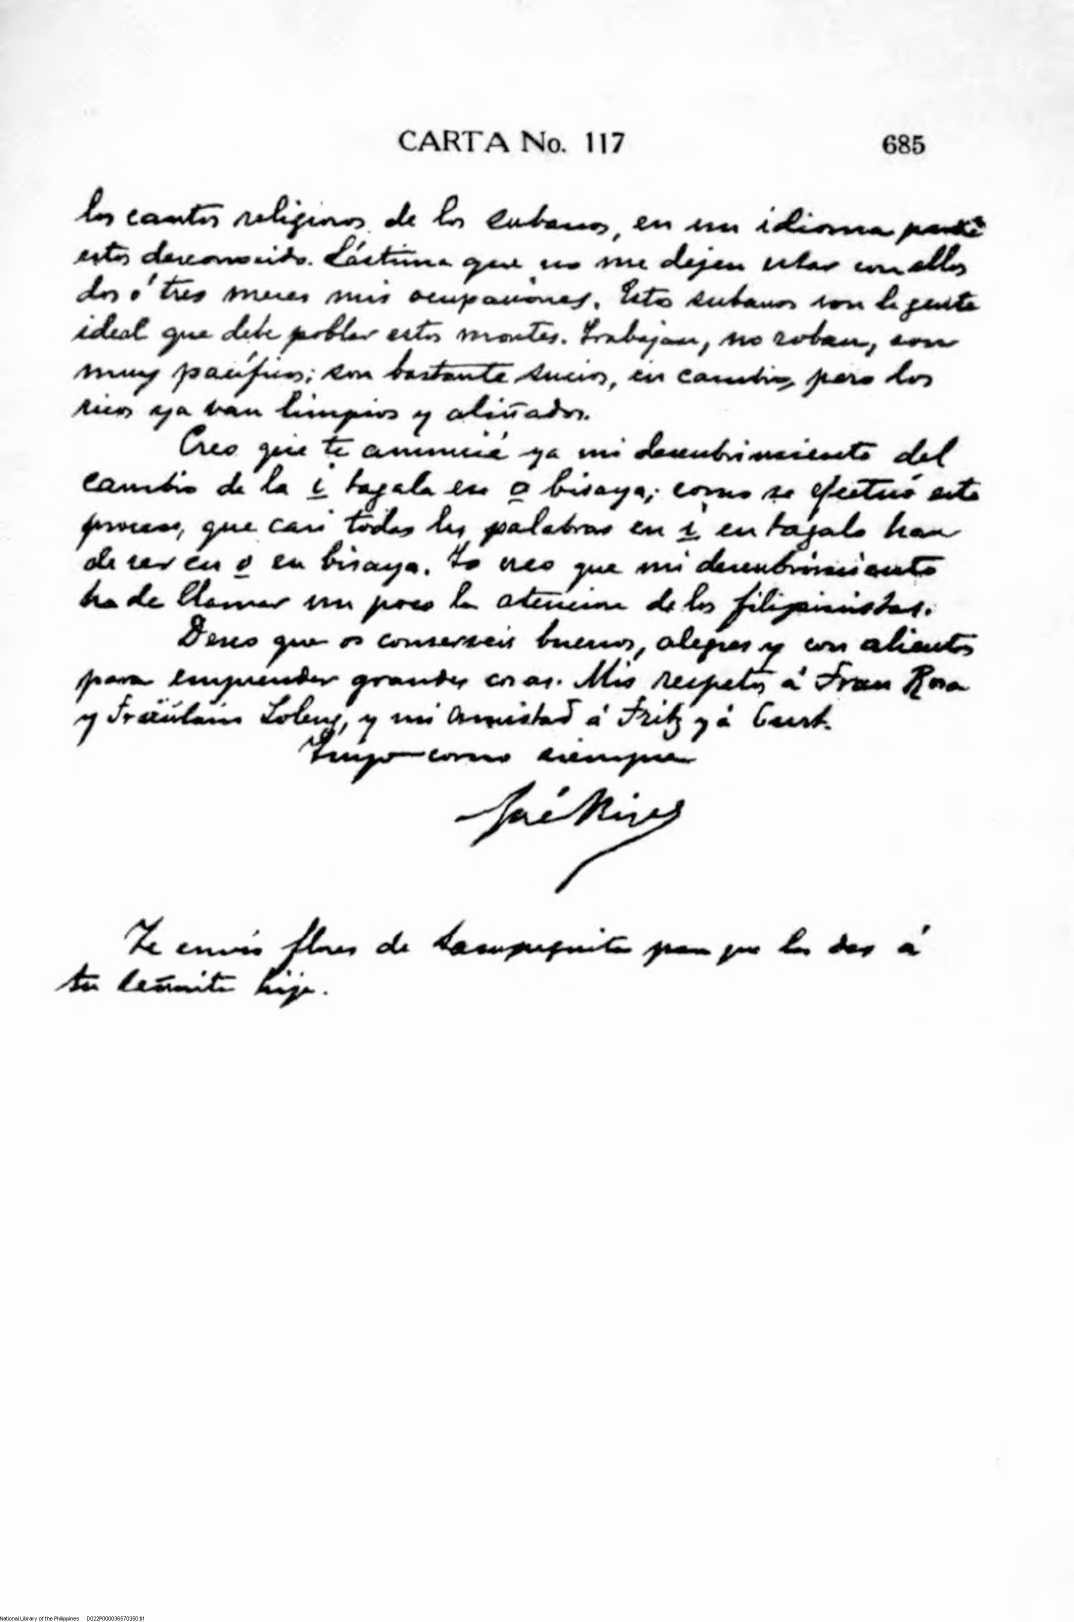 CARTA No. 117 685
los cantos religiosos de los subanos, en un idioma para
estos desconocido. Lástima que no me dejen estar con ellos
dos ó tres meses mis ocupaciones. Estos subanos son la gente
ideal que debe poblar estos montes. Trabajan, no roban, son
muy pacíficos; son bastante sucios, en cambio, pero los
ricos ya van limpios y aliñados.
Creo que te anuncié ya mi descubrimiento del
cambio de la i tagala en o bisaya; como se efectuó este
proceso, que casi todas las palabras en i en tagalo han
de ser en o en bisaya. Yo creo que mi descubrimiento
ha de llamar un poco la atencion de los filipinistas.
Deseo que os conserveis buenos, alegres y con alientos
para emprender grandes cosas. Mis respetos á Frau Rosa
y Fraülein Loleng, y mi amistad á Fritz y á Curt.
Tuyo como siempre
José Rizal
Te envio flores de para que las des á
tu Señorita hija.
National Library of the Philippines